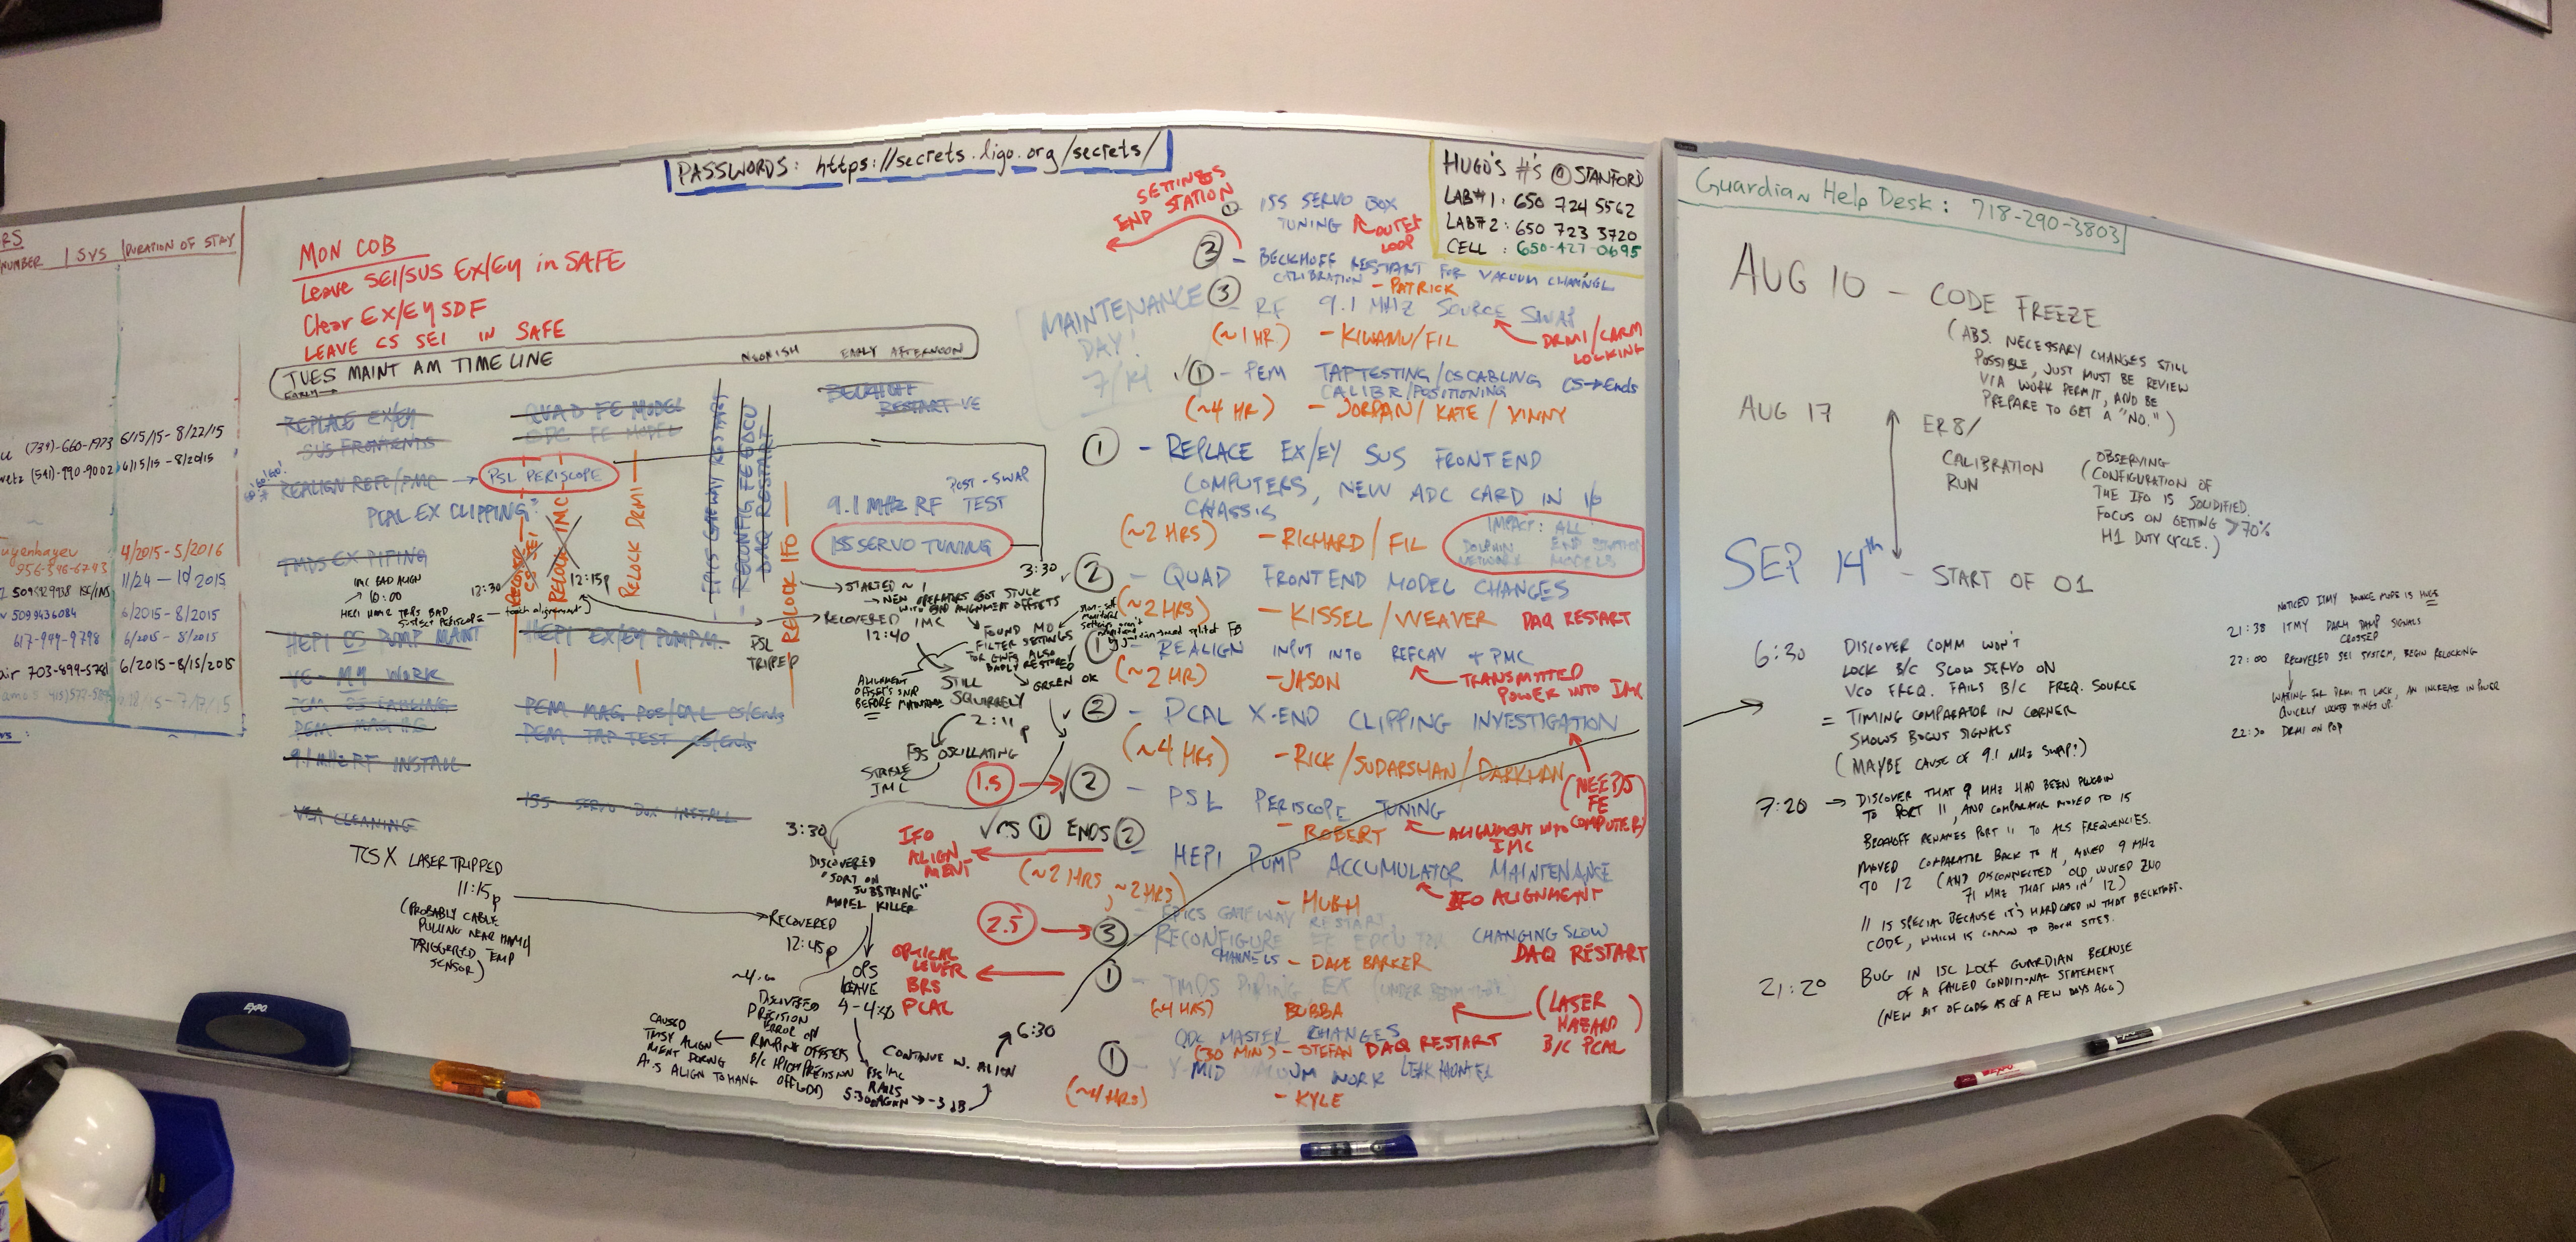 PASSWORDS: https://secrets.ligo.org/secrets/
NUMBER | SYS | DURATION OF STAY
6/15/15 - 8/22/15
6/15/15 - 8/20/15
4/2015 - 5/2016
956-346-6743
6/2015 - 8/2015
617-949-9798 6/2015 - 8/2015
6/2015 - 8/15/2015
MON COB
Leave SEI/SUS EX/EY in SAFE
Clear EX/EY SDF
LEAVE CS SEI IN SAFE
TUES MAINT AM TIMELINE
EARLY
NOONISH
EARLY AFTERNOON
REPLACE EX/EY
SUS FRONTENDS
REALIGN REFL/PMC
PCAL EX CLIPPING
TMDS EX PIPING
IMC BAD ALIGN
10:00
HEPI CS PUMP MAINT
VE - MY WORK
9.1 MHz RF INSTALL
VEA CLEANING
QUAD FE MODEL
ODC FE MODEL
PSL PERISCOPE
RELOCK IMC
12:30
12:15p
RELOCK DRMI
HEPI EX/EY PUMP M.
PEM MAG POS/CAL CS/Ends
PEM TAP TEST CS/Ends
ISS SERVO BOX INSTALL
EPICS GATEWAY RESTART
DAQ RESTART
RELOCK IFO
BECKHOFF
RESTART VE
9.1 MHz RF TEST
POST-SWAP
ISS SERVO TUNING
3:30
PSL
TRIPPED
STARTED ~ 1
NEW OPERATORS GOT STUCK
WITH BAD ALIGNMENT OFFSETS
RECOVERED IMC
12:40
FOUND MO
FILTER SETTINGS
BADLY RESTORED
GREEN OK
STILL
SQUIRRELY
2:11 p
FSS OSCILLATING
STABLE
IMC
TCS X LASER TRIPPED
11:15p
(PROBABLY CABLE
PULLING NEAR HAM4
TRIGGERED TEMP
SENSOR)
RECOVERED
12:45p
3:30
DISCOVERED
"SORT ON
SUBSTRING"
MODEL KILLER
OPS
LEAVE
4 - 4:30
DISCOVERED
PRECISION
ERROR ON
RAMPING OFFSETS
B/C HIGH PRECISION
OFFLOAD)
CAUSED
TMSY ALIGN
MENT DURING
ALIGN TO HANG
FSS/IMC
RAILS
5:30 AGAIN → -3 dB
CONTINUE W. ALIGN
6:30
SETTINGS
END STATION
ISS SERVO BOX
TUNING
OUTER
LOOP
② - BECKHOFF RESTART FOR VACUUM CHANNEL
CALIBRATION - PATRICK
MAINTENANCE
DAY!
7/14
③ - RF 9.1 MHZ SOURCE SWAP
(~1 HR) - KIWAMU/FIL
DRMI/CARM
LOCKING
① - PEM TAPTESTING/CS CABLING CS→Ends
CALIBR/POSITIONING
(~4 HR) - JORDAN / KATE / VINNY
① - REPLACE EX/EY SUS FRONTEND
COMPUTERS, NEW ADC CARD IN I/O
CHASSIS
(~2 HRS) - RICHARD / FIL
IMPACT: ALL
DOLPHIN END STATION
NETWORK MODELS
② - QUAD FRONTEND MODEL CHANGES
(~2 HRS) - KISSEL / WEAVER DAQ RESTART
① - REALIGN INPUT INTO REFCAV + PMC
(~2 HR) - JASON
TRANSMITTED
POWER INTO IMC
② - PCAL X-END CLIPPING INVESTIGATION
(~4 HRS) - RICK / SUDARSHAN / DARKHAN
(NEEDS
FE
COMPUTER)
1.5 → ② - PSL PERISCOPE TUNING
- ROBERT
ALIGNMENT INTO
IMC
CS ① ENDS ②
- HEPI PUMP ACCUMULATOR MAINTENANCE
IFO
ALIGN
MENT
(~2 HRS, ~2 HRS)
- HUGH
IFO ALIGNMENT
- EPICS GATEWAY RESTART
2.5 → ③ - RECONFIGURE FE EDCU FOR CHANGING SLOW
CHANNELS - DAVE BARKER
DAQ RESTART
OPTICAL
LEVER
BRS
PCAL
① - TMDS PIPING EX
(~4 HRS) BUBBA
(LASER
HAZARD)
B/C PCAL
ODC MASTER CHANGES
(30 MIN) - STEFAN DAQ RESTART
① - Y-MID VACUUM WORK LEAK HUNTER
(~4 HRS) - KYLE
HUGO'S #'s @ STANFORD
LAB#1: 650 724 5562
LAB#2: 650 723 3720
CELL : 650-427-0695
Guardian Help Desk: 718-290-3803
AUG 10 - CODE FREEZE
(ABS. NECESSARY CHANGES STILL
POSSIBLE, JUST MUST BE REVIEW
VIA WORK PERMIT, AND BE
PREPARE TO GET A "NO.")
AUG 17
ER8/
CALIBRATION
RUN
OBSERVING
(CONFIGURATION OF
THE IFO IS SOLIDIFIED.
FOCUS ON GETTING >70%
H1 DUTY CYCLE.)
SEP 14th - START OF O1
6:30 DISCOVER COMM WON'T
LOCK B/C SLOW SERVO ON
VCO FREQ. FAILS B/C FREQ. SOURCE
= TIMING COMPARATOR IN CORNER
SHOWS BOGUS SIGNALS
(MAYBE CAUSE OF 9.1 MHz SWAP?)
7:20 → DISCOVER THAT 9 MHZ HAD BEEN PLUGED IN
TO PORT 11, AND COMPARATOR MOVED TO 15
BECKHOFF RENAMES PORT 11 TO ALS FREQUENCIES.
MOVED COMPARATOR BACK TO 11, MOVED 9 MHZ
TO 12 (AND DISCONNECTED OLD, UNUSED 2ND
71 MHz THAT WAS IN 12)
11 IS SPECIAL BECAUSE IT'S HARDCODED IN THAT BECKHOFF.
CODE, WHICH IS COMMON TO BOTH SITES.
21:20 BUG IN ISC LOCK GUARDIAN BECAUSE
OF A FAILED CONDITIONAL STATEMENT
(NEW BIT OF CODE AS OF A FEW DAYS AGO)
NOTICED ITMY BOUNCE MODE IS HUGE
21:38 ITMY DARM DAMP SIGNALS
CROSSED
22:00 RECOVERED SEI SYSTEM, BEGIN RELOCKING
WAITING FOR DRMI TO LOCK, AN INCREASE IN POWER
QUICKLY LOCKED THINGS UP.
22:30 DRMI ON POP
EXPO